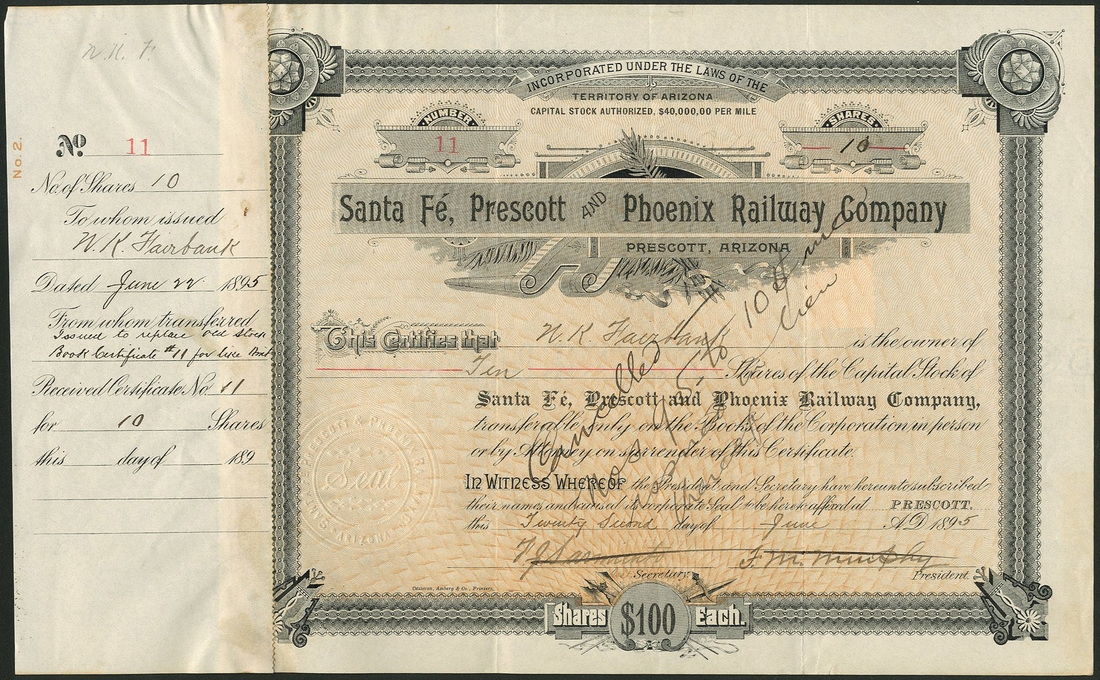 N. K. F.
No. 2.
No 11
No. of Shares 10
To whom issued
N. K Fairbank
Dated June 22 1895
From whom transferred
Issued to replace old Stock
Book Certificate #11 for like
Received Certificate No. 11
for 10 Shares
this day of 189
INCORPORATED UNDER THE LAWS OF THE
TERRITORY OF ARIZONA
CAPITAL STOCK AUTHORIZED, $40,000,00 PER MILE
NUMBER
11
SHARES
10
Santa Fé, Prescott AND Phoenix Railway Company
PRESCOTT, ARIZONA
This Certifies that N. K Fairbank is the owner of
Ten Shares of the Capital Stock of
Santa Fé, Prescott and Phoenix Railway Company,
transferable only on the Books of the Corporation in person
or by Attorney on surrender of this Certificate.
IN WITNESS WHEREOF the President and Secretary have hereunto subscribed
their names and caused its corporate Seal to be hereto affixed at PRESCOTT.
this Twenty Second day of June A.D. 1895
Secretary.
F. M. Murphy
President.
Cancelled
Nos 95 to 10
lieu
Seal
ARIZONA
Shares $100 Each.